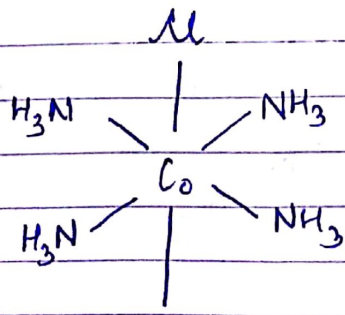 Cl
H₃N NH₃
Co
H₃N NH₃